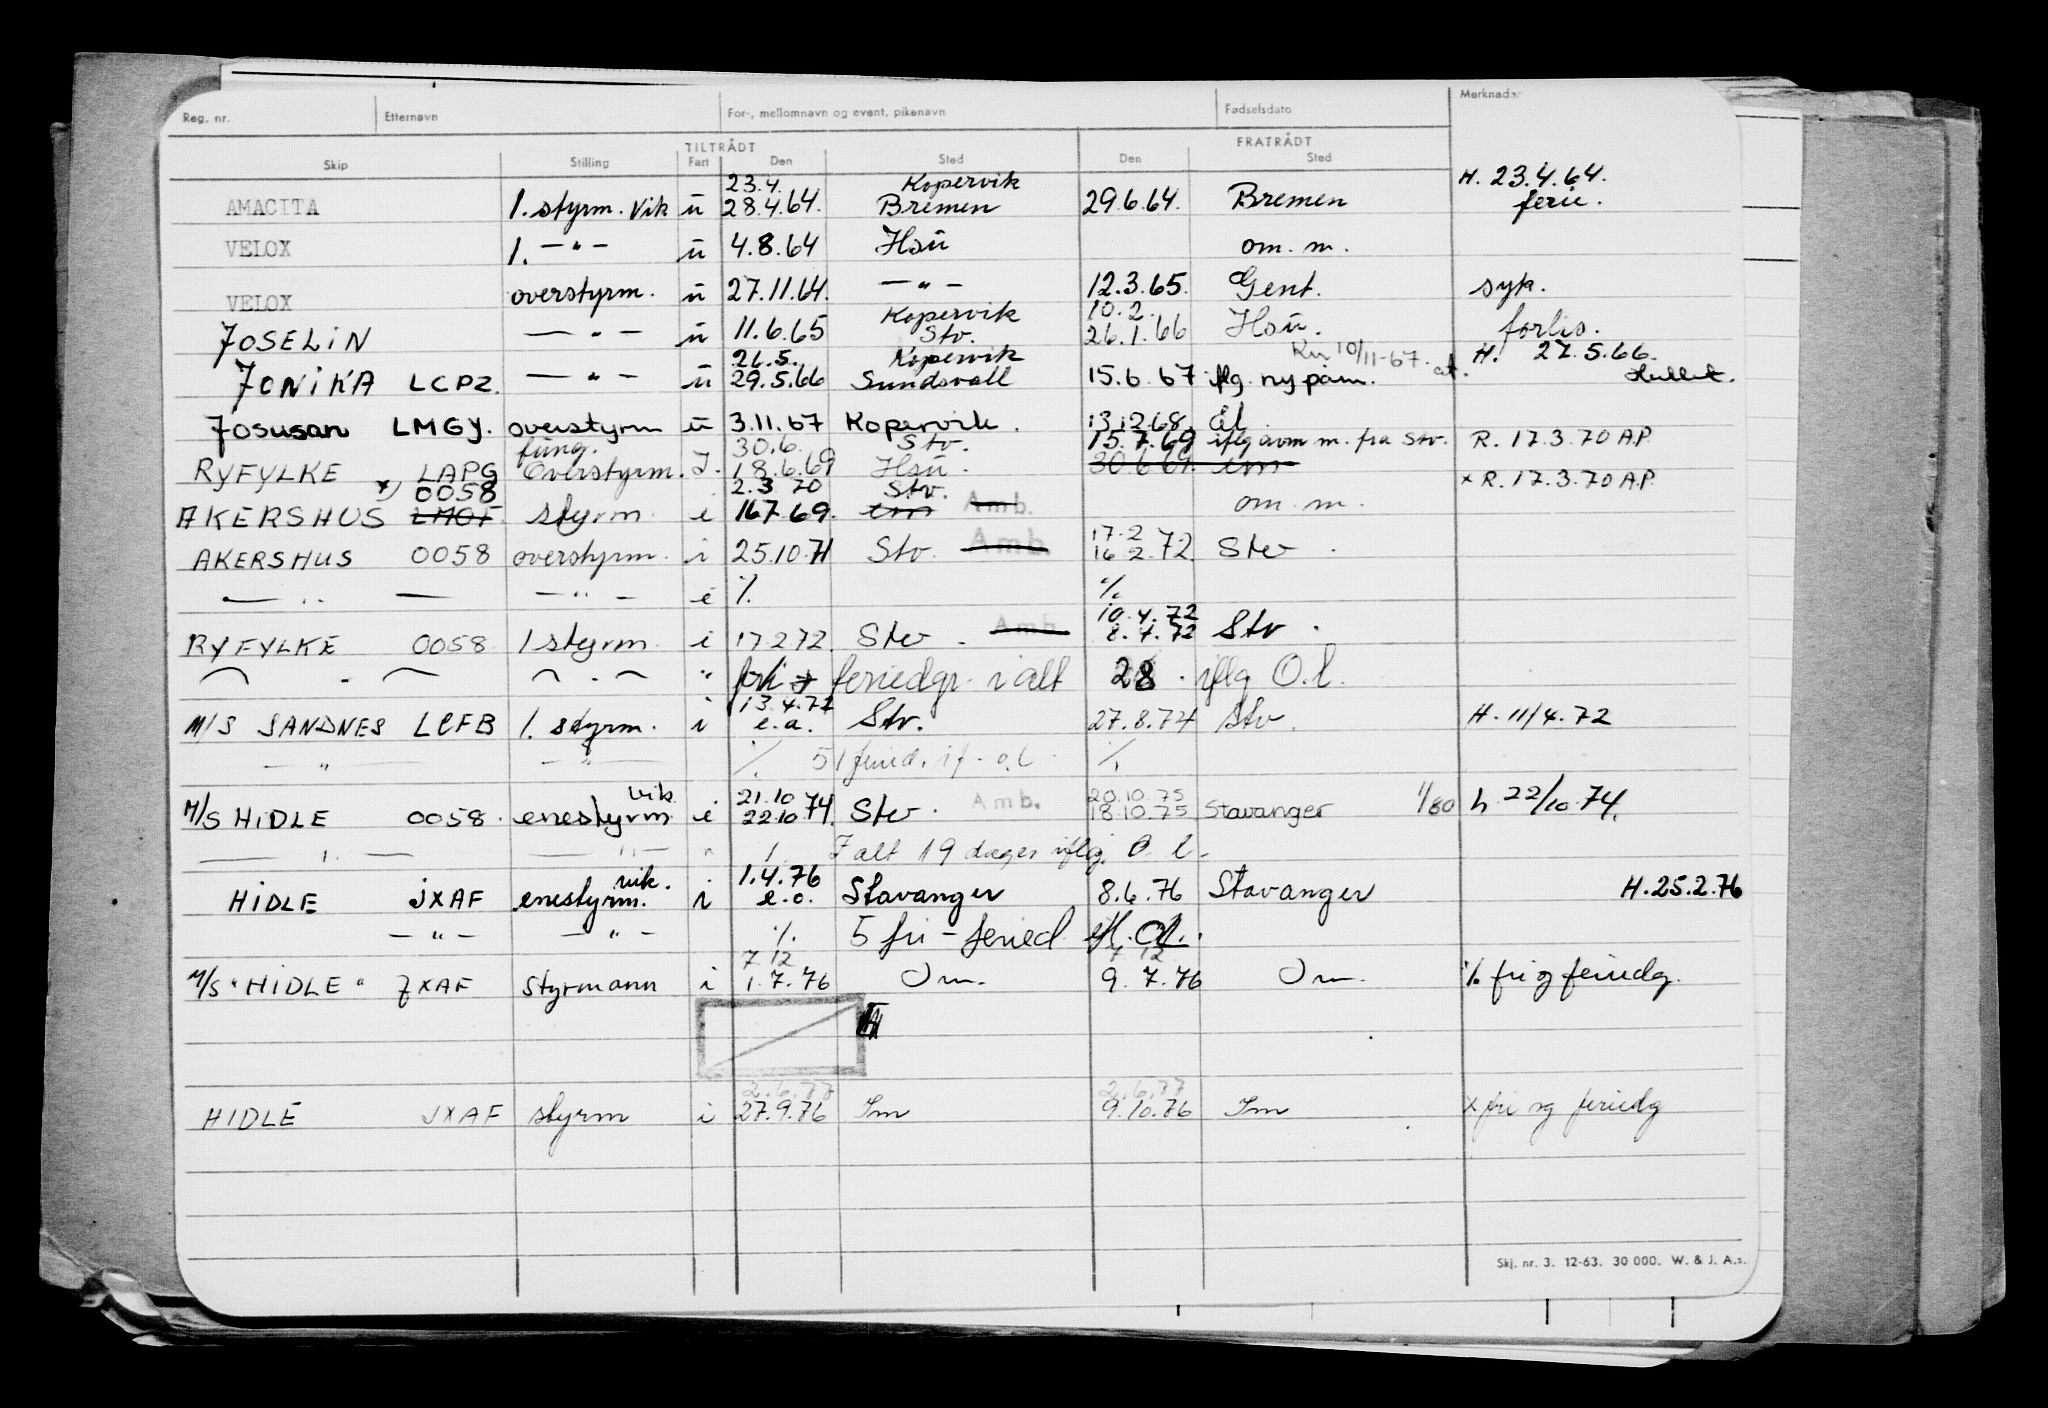 Reg. nr. Etternavn For-, mellomnavn og event. pikenavn Fødselsdato Merknader
TILTRÅDT FRATRÅDT
Skip Stilling Fart Den Sted Den Sted
23.4. Kopervik H. 23.4.64.
AMACITA 1. styrm. Vik u 28.4.64. Bremen 29.6.64. Bremen ferie.
VELOX 1. — " — u 4.8.64 Hsu om. m.
VELOX overstyrm. u 27.11.64. — " — 12.3.65. Gent. syk.
Kopervik 10.2.
JOSELIN — " — u 11.6.65 Stv. 26.1.66 Hsu. forlis.
26.5. Kopervik 10/11-67. H. 27.5.66.
JONIKA LCPZ. — " — u 29.5.66 Sundsvall 15.6.67 iflg. ny påm.
Josusan LMGY. overstyrm u 3.11.67 Kopervik. 13.12.68.
fung. 30.6. Stv. 15.7.69 iflg avm m. fra Stv. R. 17.3.70 A.P.
RYFYLKE LAPG Overstyrm. I. 18.6.69 Hsu. 30.6.69.
x) 0058 2.3 70 Stv. x R. 17.3.70 A.P.
AKERSHUS LMOF styrm i 16.7.69. Amb. om. m.
17.2
AKERSHUS 0058 overstyrm. i 25.10.71 Stv. Amb. 16.2.72 Stv.
— " — — " — i %. %.
10.4.72
RYFYLKE 0058 1 styrm i 17.2.72. Stv. Amb. 8.4.72 Stv.
— " — — " — " feriedgr. i alt 28. iflg O.l.
13.4.72
M/S SANDNES LCFB 1. styrm. i e.a. Stv. 27.8.74 Stv. H. 11/4.72
— " — — " — %. 51 feried. if. o.l. %.
vik. 21.10 20.10.75
M/S HIDLE 0058. enestyrm i 22.10 74. Stv. Amb. 18.10.75 Stavanger 1/80 h. 22/10.74.
— " — — " — " I alt 19 dager iflg. O.l.
vik. 1.4.76
HIDLE JXAF enestyrm. i e.o. Stavanger 8.6.76 Stavanger H. 25.2.76
— " — — " — %. 5 fri - feried ifl. Ol.
7 12 7 12
M/S "HIDLE" JXAF Styrmann i 1.7.76 Om. 9.7.76 Om. %. fri og feriedg.
2.6.77 2.6.77
HIDLE JXAF styrm i 27.9.76 Im 9.10.76 Im x fri og feriedg
Skj. nr. 3. 12-63. 30 000. W. & J. A.s.